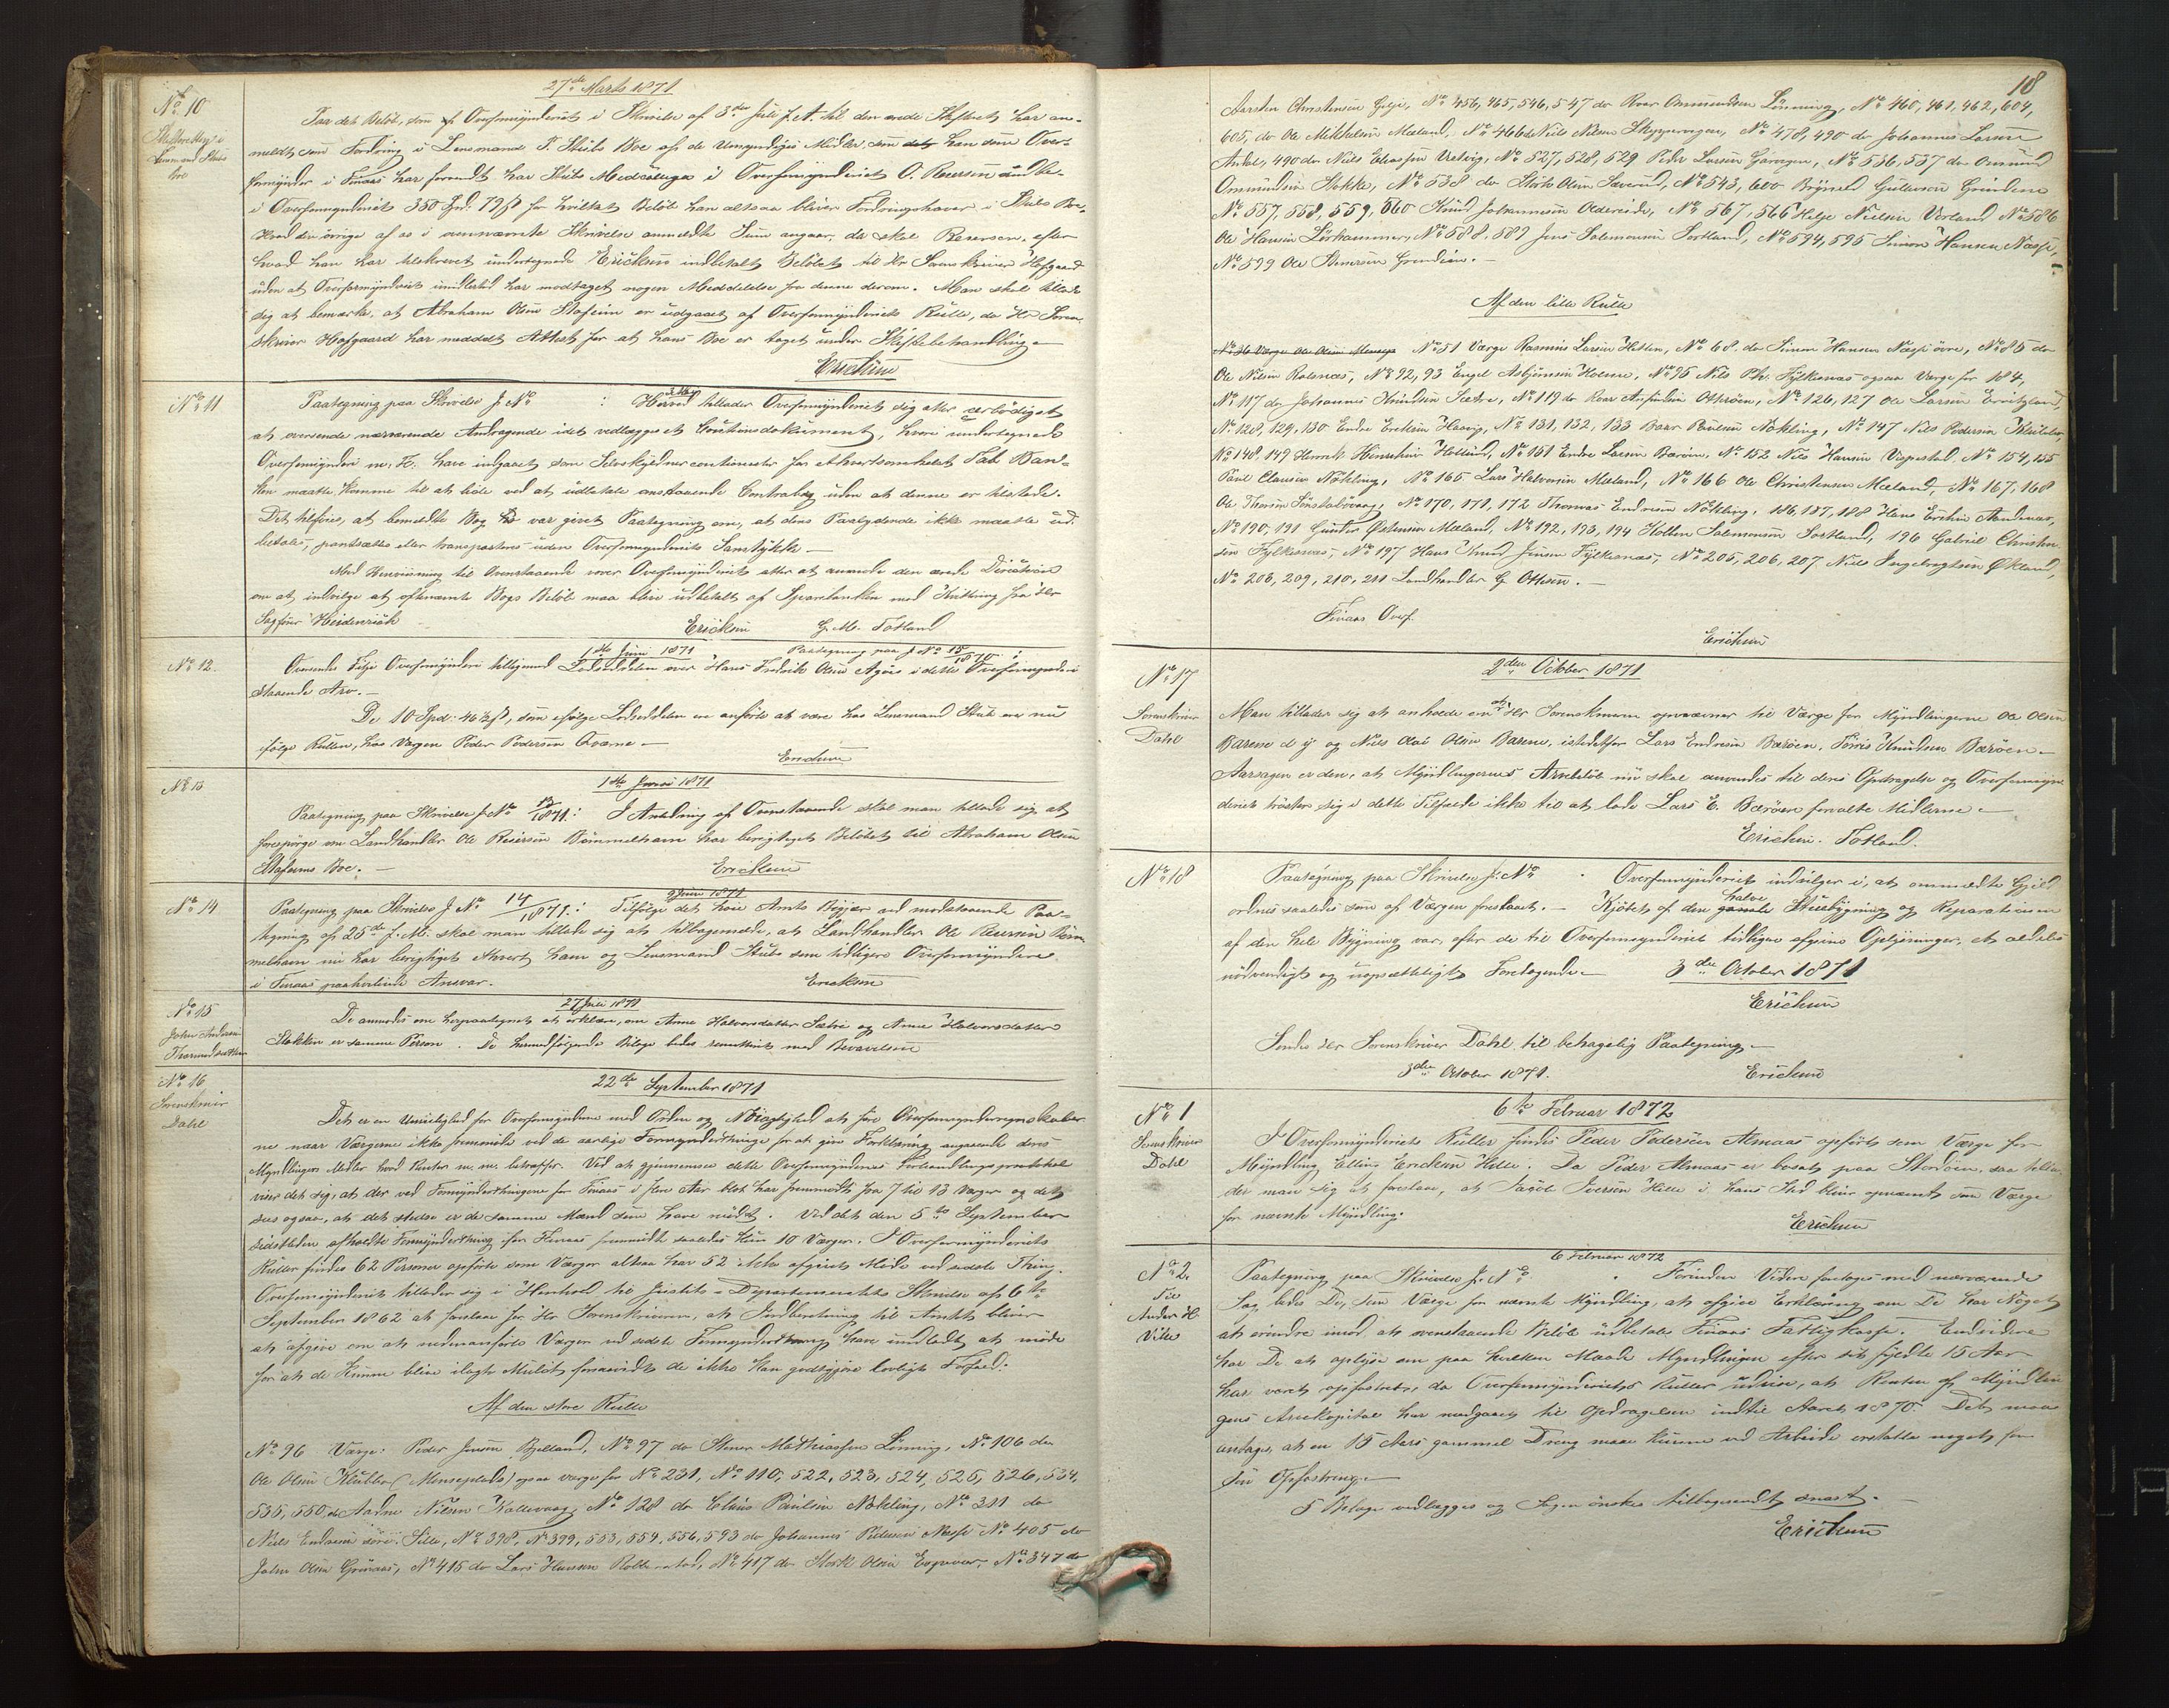 27de Marts 1871
No 10
Skifteretten i
Lensmand Stubs
Bo
Paa det Beløb, som Overformynderiet i Skrivelse af 3die Juli f. A. til den ærede Skifteret har an-
meldt som Fordring i Lensmand P. Stubs Bo af de Umyndiges Midler, som han som Over-
formynder i Finaas har forvendt har Stubs Medsælliger i Overformynderiet O. Reiersen indbe-
i Overformynderiet 350 Spd. 79 β for hvilket Beløb han altsaa bliver Fordringshaver i Stubs Bo.
Hvad den øvrige af os i ovennævnte Skrivelse anmeldte Sum angaar, da skal Reiersen, efter
hvad han har tilskrevet undertegnede Ericksen indbetalt Beløbet til Hr Sorenskriver Hofgaard
uden at Overformynderiet imidlertid har modtaget nogen Meddelelse fra denne derom. Man skal tillade
sig at bemærke, at Abraham Olsen Stafsem er udgaaet af Overformynderiets Rulle, da Hr Soren-
skriver Hofgaard har meddelt Attest for at hans Bo er taget under Skiftebehandling.
Ericksen
No 11
Paategning paa Skrivelse J. No : Herved tillader Overformynderiet sig atter ærbødigst
at oversende nærværende Andragende idet vedlægges et Cautionsdokument, hvori undertegnede
Overformyndere m. Fl. have indgaaet som Selvskyldnercautionister for ethvertsomhelst Tab Ban-
ken maatte komme til at lide ved at udbetale omstaaende Contrabog uden at denne er tilstede.
Det tilføies, at bemeldte Bog var givet Paategning om, at dens Paalydende ikke maatte ud-
betales, pantsættes eller transporteres uden Overformynderiets Samtykke.
Med Henvisning til Ovenstaaende vover Overformynderiet atter at anmode den ærede Direktion
om at indvilge at oftenævnte Bogs Beløb maa blive udbetalt af Sparebanken mod Kvittering fra Hr
Sagfører Heidenreich
Ericksen G. M. Totland
No 12.
1ste Juni 1871 Paategning paa J No 15/1870 :
Oversendes Fitje Overformynderi tilligemed Lodseddelen over Hans Fredrik Olsen Agnes i dette Overformynderi
staaende Arv.
De 10 Spd. 46½ β, som ifølge Lodseddelen ere anførte at være hos Lensmand Stub ere nu
ifølge Rullen, hos Værgen Peder Pedersen Qværne
Ericksen
No 13
1ste Juni 1871
Paategning paa Skrivelse J. No 13/1871: I Anledning af Ovenstaaende skal man tillade sig at
forespørge om Landhandler Ole Reiersen Bømmelhavn har berigtiget Beløbet til Abraham Olsen
Stafsems Bo.
Ericksen
No 14
9 Juni 1871
Paategning paa Skrivelse J No 14/1871: Tilfølge det høie Amts Begjær ved modstaaende Paa-
tegning af 25de f. M. skal man tillade sig at tilbagemelde, at Landhandler Ole Reiersen Bøm-
melhavn nu har berigtiget ethvert ham og Lensmand Stubs som tidligere Overformyndere
i Finaas paahvilende Ansvar.
Ericksen
No 15
John Andersen
27 Juli 1871
De anmodes om herpaategnet at erklære, om Anne Halvorsdatter Sætre og Anne Halvorsdatter
Stokken er samme Person. De hermedfølgende Bilage bedes remitteret med Besvarelsen
No 16
Sorenskriver
Dahl
22de September 1871
Det er en Umulighed for Overformynderne med Orden og Nøiagtighed at føre Overformynderregnskaber-
ne naar Værgerne ikke fremmøde ved de aarlige Formynderthinge for at give Forklaring angaaende deres
Myndlingers Midler hvad Renter m. m. betræffer. Ved at gjennemsee dette Overformynderies Forhandlingsprotokol
viser det sig, at der ved Formynderthingene for Finaas i flere Aar blot har fremmødt fra 7 til 13 Værger og det
sees ogsaa, at det stedse er de samme Mænd som have mødt. Ved det den 5te September
sidstleden afholdte Formynderthing for Finaas fremmødte saaledes kun 10 Værger. I Overformynderiets
Ruller findes 62 Personer opførte som Værger altsaa har 52 ikke afgivet Møde ved sidste Thing.
Overformynderiet tillader sig i Henhold til Justits-Departementets Skrivelse af 6te
September 1862 at foreslaa for Hr Sorenskriveren, at Indberetning til Amtet bliver
at afgive om at nedenanførte Værger ved sidste Formynderthing have undladt at møde
for at de kunne blive ilagte Mulct forsaavidt de ikke kan godtgjøre lovligt Forfald:
Af den store Rulle
No 96 Værge: Peder Jensen Bjelland, No 97 do Stener Mathiassen Lønning, No 106 do
Ole Olsen Klubbe (Mosseplads) ogsaa værge for No 231, No 110, 522, 523, 524, 525, 526, 534,
535, 550, do Aadne Nilsen Kallevaag, No 128 do Elias Paulsen Nøkling, No 311 do
Niels Endresen søre Sille, No 398, No 399, 553, 554, 556, 593 do Johannes Pedersen Næsse No 405 do
John Olsen Grønaas, No 415 do Lars Hansen, No 417 do Stork Olsen Espevær, No 347 do
18
Aarsten Christensen Gilje, No 456, 465, 546, 547 do Roar Omundsen Lønning, No 460, 461, 462, 604,
605, do Ole Mikkelsen Mæland, No 466 do Niels Nilsen Skyggevigen, No 478, 490 do Johannes Larsen
Ardal, 490 do Nils Eliassen Uvetvig, No 527, 528, 529 Peder Larsen Gjæragen, No 536, 537 do Omund
Omundsen Stokke, No 538 do Stork Olsen Sæverud, No 543, 600 Brynild Gullaksen Grindene
No 557, 558, 559, 560 Knud Johannessen Oldereide, No 567, 566 Helge Nielsen Vorland No 586
Ole Hansen Lørhammer, No 588, 589 Jens Salomonsen Sortland, No 594, 595 Simon Hansen Næsse,
No 599 Ole Stenersen Grinden.
Af den lille Rulle
No 36 Værge Ole Olsen Mosseg No 51 Værge Rasmus Larsen Hetten, No 68 do Simon Hansen Næse øvre, No 85 do
Ole Nilsen Rolsnæs, No 92, 93 Engel Asbjørnsen Holme, No 95 Nils Ph. Fylkesnæs ogsaa Værge for 184,
No 117 do Johannes Knudsen Sætre, No 119 do Roar Asfindsen Otterøen, No 126, 127 Ole Larsen Eritzland,
No 128, 129, 130 Endre Ericksen Haavig, No 131, 132, 133 Baar Paulsen Nøkling, No 147 Nils Pedersen
No 148, 149 Henrik Hinrichsen Hollund, No 151 Endre Larsen Børøen, No 152 Nils Hansen Vispestad, No 154, 155
Paul Clausen Nøkling, No 165 Lars Halvorsen Mæland, No 166 Ole Christensen Mæland, No 167, 168
Ole Thorsen Sønstabøvaag, No 170, 171, 172 Thomas Endresen Nøkling, 186, 187, 188 Hans Erichsen Aandenæs,
No 190, 191 Gunder Østensen Mæland, No 192, 193, 194 Kolben Salomonsen Sortland, 196 Gabriel Christen-
sen Fylkesnæs, No 197 Hans Knud Jensen Fylkesnæs, No 205, 206, 207 Niels Ingebrigtsen Økland,
No 208, 209, 210, 211 Landhandler G. Ottesen.
Finaas Overf.
Ericksen
No 17
Sorenskriver
Dahl
2den October 1871
Man tillader sig at anholde om at Hr Sorenskriveren opnævner til Værge for Myndlingerne Ole Olsen
Barene d. y. og Niels Olai Olsen Barene, istedetfor Lars Endresen Børøen, Tørris Knudsen Børøen.
Aarsagen er den, at Myndlingernes Arvebeløb nu skal anvendes til deres Opdragelse og Overformyn-
deriet trøster sig i dette Tilfælde ikke til at lade Lars E. Børøen forvalte Midlerne.
Ericksen. Totland.
No 18
Paategning paa Skrivelse J. No . Overformynderiet indvilger i, at ommeldte Gjeld
ordnes saaledes som af Værgen foreslaaet. Kjøbet af den gamle halve Stuebygning og Reparationen
af den hele Bygning var, efter de til Overformynderiet tidligere afgivne Oplysninger, et aldeles
nødvendigt og uopsætteligt Foretagende.
3die October 1871
Ericksen
Sendes Hr Sorenskriver Dahl til behagelig Paategning.
3die October 1871.
Ericksen
No 1
Sorenskriver
Dahl
6te Februar 1872
I Overformynderiets Ruller findes Peder Pedersen Almaas opført som Værge for
Myndling Elling Ericksen Hille. Da Peder Almaas er bosat paa Stordøen, saa tilla-
der man sig at foreslaa, at Jacob Iversen Hille i hans Sted bliver opnævnt som Værge
for nævnte Myndling.
Ericksen
No 2.
Anders H.
Ville
6 Februar 1872
Paategning paa Skrivelse J. No . Forinden Videre foretages med nærværende
Sag, bedes De, som Værge for nævnte Myndling, at afgive Erklæring om De har Noget
at erindre imod, at ovenstaaende Beløb udbetales Finaas Fattigkasse. Endvidere
har De at oplyse om paa hvilken Maade Myndlingen efter sit fyldte 15 Aar
har været opfostret, da Overformynderiets Ruller udvise, at Renten af Myndlin-
gens Arvekapital har medgaaet til Opdragelsen indtil Aaret 1870. Det maa
antages, at en 15 Aars gammel Dreng maa kunne ved Arbeide erstatte noget for
sin Opfostring.
5 Bilage vedlægges og Sagen ønskes tilbagesendt snart.
Ericksen